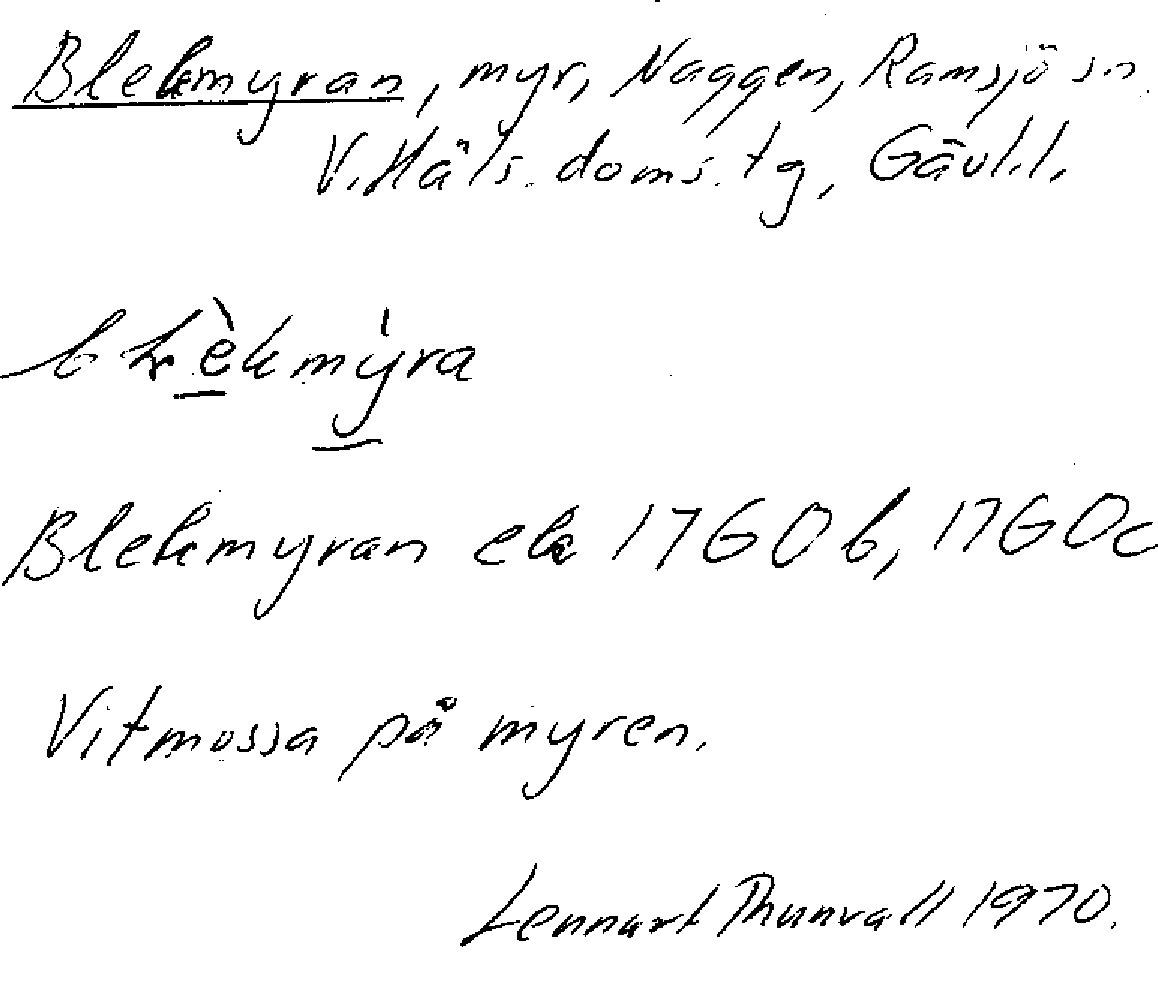 Blekmyran, myr, Naggen, Ramsjö sn.
V. Häls. doms. tg, Gävl.l.
Blekmyran ek 1760b, 1760c
Vitmossa på myren.
Lennart Thunvall 1970.